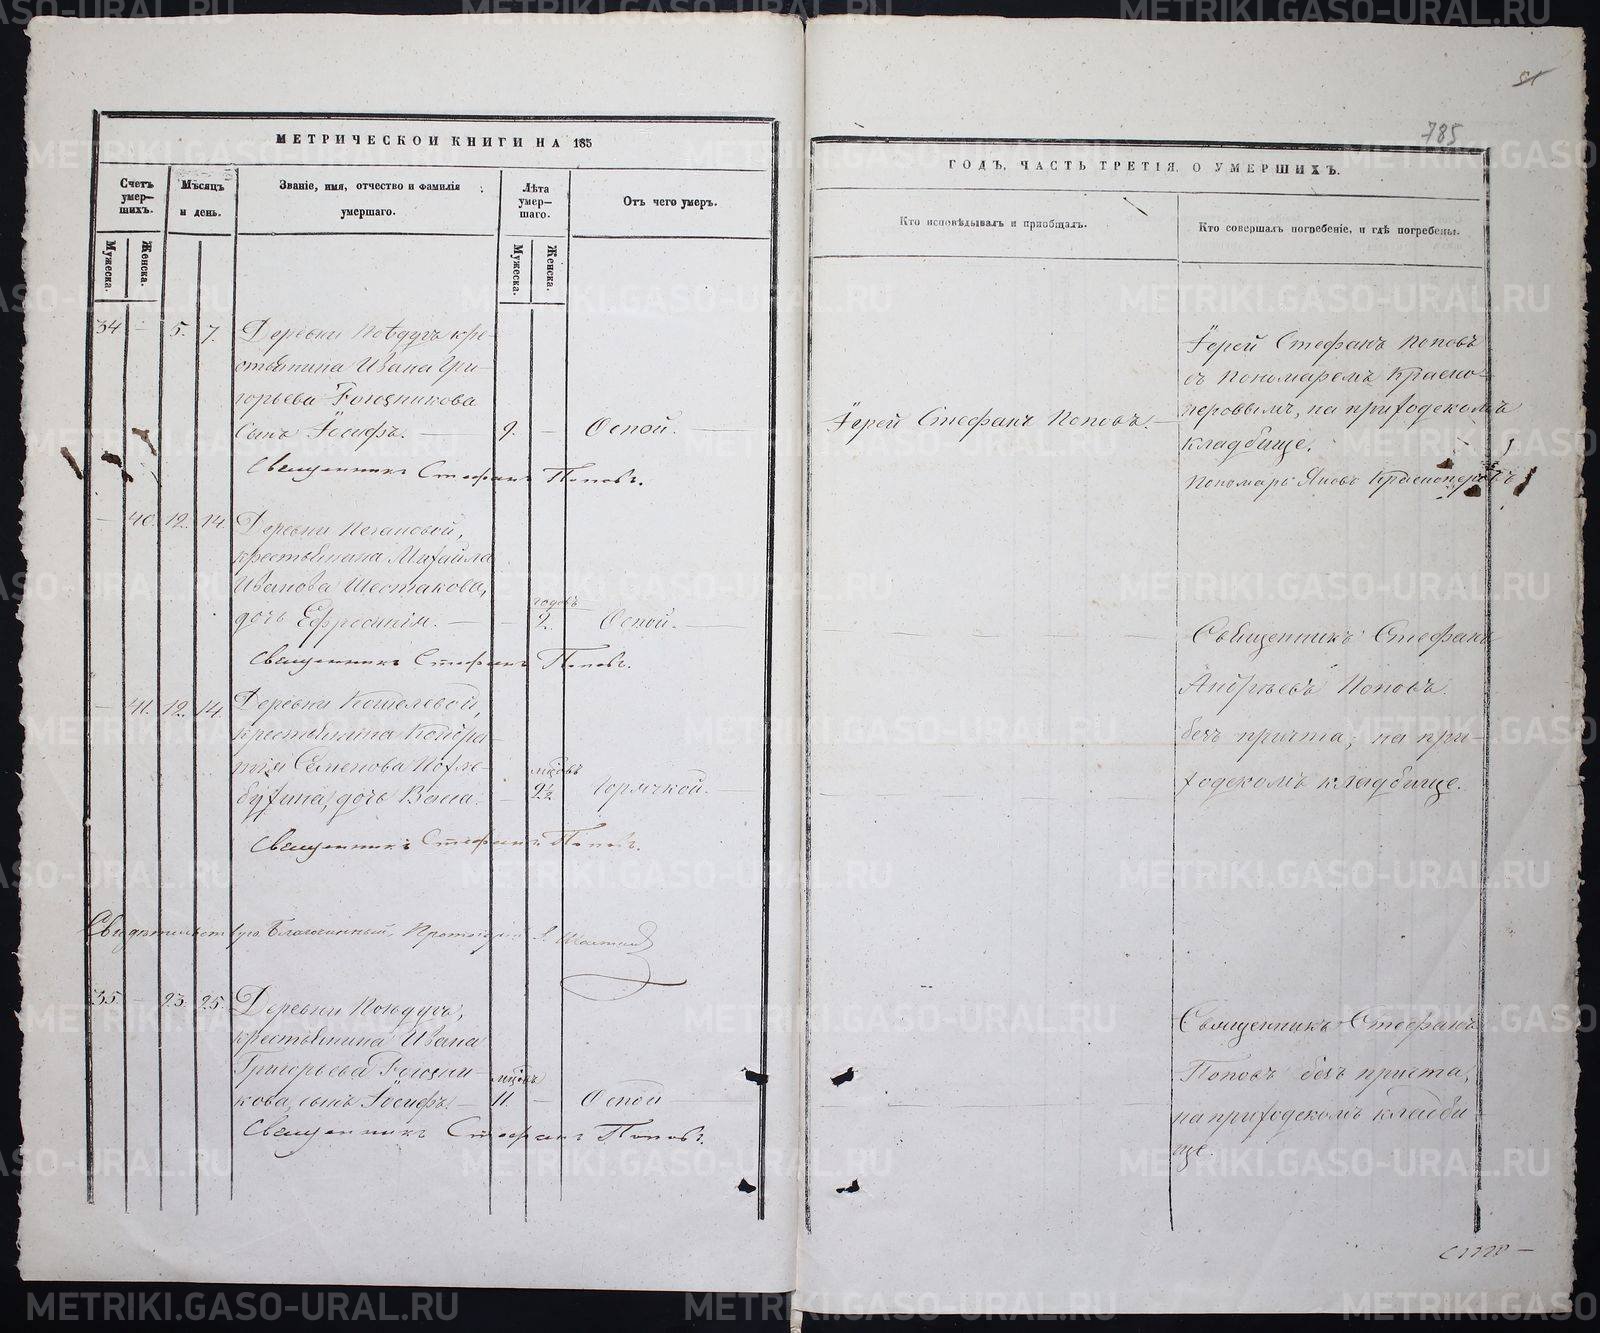 МЕТРИЧЕСКОИ КНИГИ НА 185
Счетъ умер—шихъ.
Мѣсяцъ и день.
Званіе, имя, отчество и фамилія умершаго.
Лѣта умер—шаго.
Отъ чего умеръ.
Мужеска.
Женска.
Мужеска.
Женска.
34 — 5. 7. Деревни
стьянина Ивана Гри—
горьева
Сынъ Іосифъ. — 9. — Оспой.
Священникъ Стефанъ Поповъ.
— 40. 12. 14. Деревни
крестьянина Михайла
Иванова Шестакова,
годовъ
дочь Ефросинія. — 2. Оспой.
Священникъ Стефанъ Поповъ.
— 41. 12. 14. Деревни Кошелевой,
крестьянина Кондра—
тія Семенова
мцовъ
дочь — 2½ Горячкой.
Священникъ Стефанъ Поповъ.
Благочинный
35. — 23. 25. Деревни
крестьянина Ивана
Григорьева
мцовъ
кова, сынъ Іосифъ. — 11. — Оспой
Священникъ Стефанъ Поповъ.
785
ГОДЪ, ЧАСТЬ ТРЕТІЯ, О УМЕРШИХЪ.
Кто исповѣдывалъ и пріобщалъ.
Кто совершалъ погребеніе, и гдѣ погребены.
Іерей Стефанъ Поповъ
съ пономаремъ Красно—
Іерей Стефанъ Поповъ.
перовымъ, на приходскомъ
кладбище.
Пономарь Яковъ Красноперовъ
Священникъ Стефанъ
Андреевъ Поповъ
безъ причта, на при—
ходскомъ кладбище.
Священникъ Стефанъ
Поповъ безъ причта,
на приходскомъ кладби—
ще.
METRIKI.GASO-URAL.RU